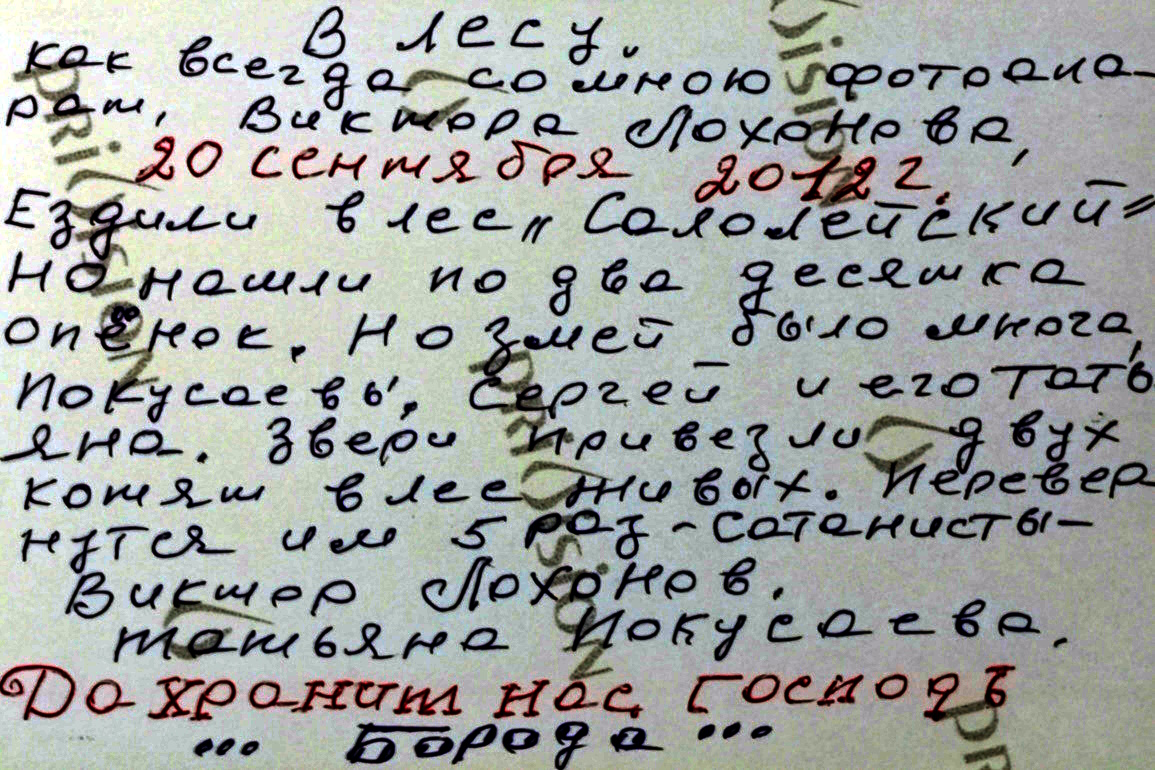 В лесу.
как всегда со мною фотоапа-
рат, Виктора Лоханова,
20 сентября 2012 г.
Ездили в лес „Салолейский"
Но нашли по два десятка
опёнок. Но змей было много,
Покусаевы, Сергей и его Тать
яна. Звери привезли двух
котят в лес живых. Перевер
нутся им 5 раз - сатанисты -
Виктор Лоханов.
Татьяна Покусаева.
Да хранит нас Господь
... Борода ...